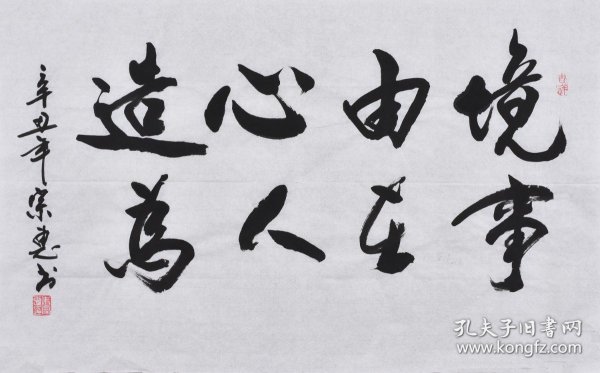 境由心造
事在人為
辛丑年
孔夫子旧书网
www.kongfz.com